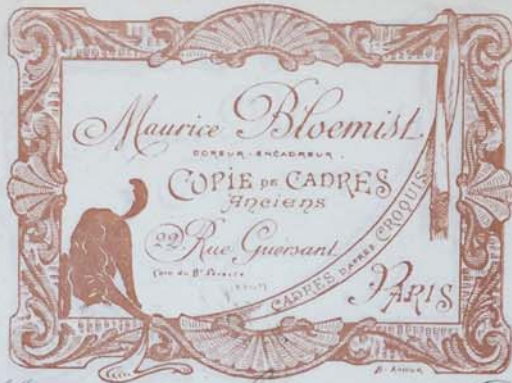 Maurice Bloemist
DOREUR-ENCADREUR.
COPIE DE CADRES
Anciens
22 Rue Guersant
CADRES D'APRÈS CROQUIS
PARIS